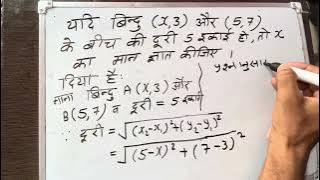 यदि बिन्दु (x,3) और (5,7)
के बीच की दूरी 5 इकाई हो, तो x
का मान ज्ञात कीजिए।
दिया है:
माना बिन्दु A(x,3) और
B(5,7) व दूरी = 5 इकाई
∵ दूरी = √(x₂-x₁)²+(y₂-y₁)²
= √(5-x)² + (7-3)²